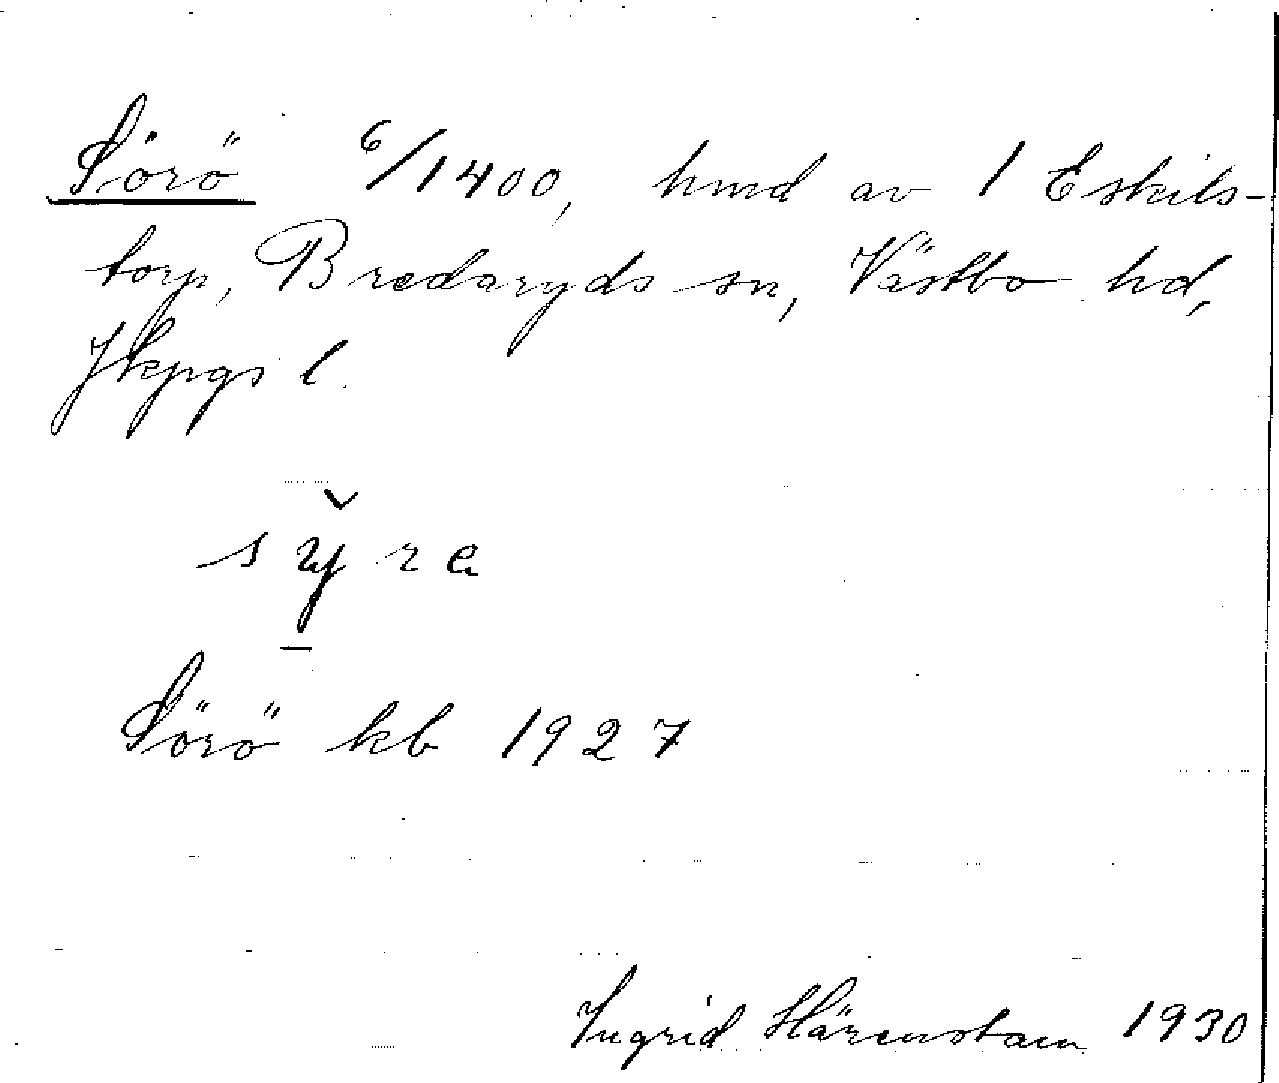 Sörö 6/1400, hmd av 1 Eskils-
torp, Bredaryds sn, Västbo hd,
Jkpgs l.
sy̲̌re
Sörö kb 1927
Ingrid Härenstam 1930